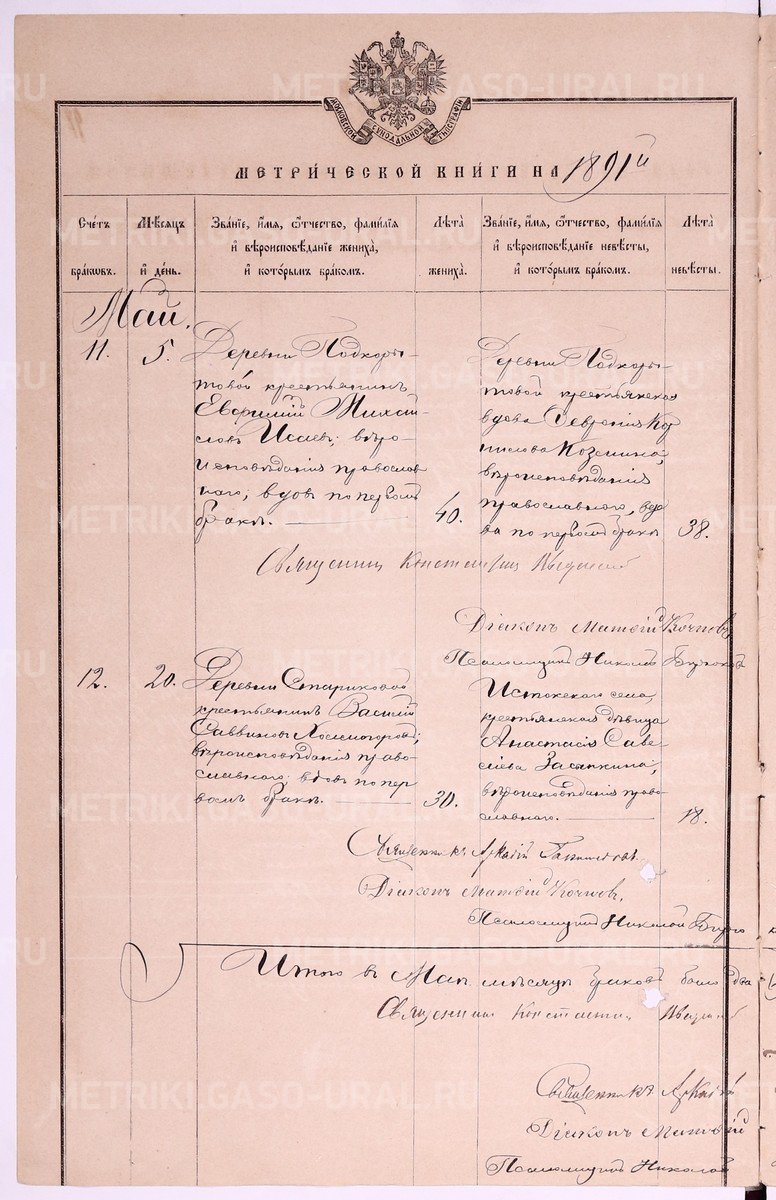 МОСКОВСКОЙ СѴНОДАЛЬНОЙ ТИПОГРАФІИ
МЕТРИ́ЧЕСКОЙ КНИ́ГИ НА 1891й
Сче́тъ бра́ковъ.
Мѣ́сяцъ и де́нь.
Зва́ніе, и́мя, ѻ́тчество, фами́лія и вѣроисповѣ́даніе жениха́, и кото́рымъ бра́комъ.
Лѣ́та жениха́.
Зва́ніе, и́мя, ѻ́тчество, фами́лія и вѣроисповѣ́даніе невѣ́сты, и кото́рымъ бра́комъ.
Лѣ́та невѣ́сты.
Май.
11.
5.
Деревни Подкоры-
товой крестьянинъ
Евфимій Михай-
ловъ Исаевъ, вѣро-
исповѣданія православ
наго, вдовъ по первомъ
бракѣ.
40.
Деревни Подкоры-
товой крестьянская
вдова Февронія Кор
нилова Коземина,
вѣроисповѣданія
православнаго, вдо
ва по первомъ бракѣ
38.
Священникъ Константинъ
Діаконъ Матѳій Кочновъ
Псаломщикъ Николай
12.
20.
Деревни Стариковой
крестьянинъ Василій
Саввиновъ Холмогоровъ,
вѣроисповѣданія право-
славнаго, вдовъ по пер
вомъ бракѣ.
30.
Истокскаго села,
крестьянская дѣвица
Анастасія Саве
ліева Засыпкина,
вѣроисповѣданія право-
славнаго.
18.
Священникъ Аркадій
Діаконъ Матѳій Кочновъ,
Псаломщикъ Николай
Итого въ Маѣ мѣсяцѣ браковъ было два
Священникъ Константинъ
Священникъ Аркадій
Діаконъ Матѳій
Псаломщикъ Николай
METRIKI.GASO-URAL.RU